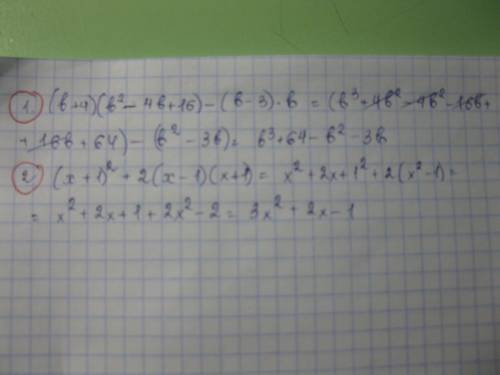 1. (b+4)(b²-4b+16)-(b-3)·b = (b³+4b²-4b²-16b+
+16b+64)-(b²-3b)= b³+64-b²-3b
2. (x+1)²+2(x-1)(x+1)= x²+2x+1²+2(x²-1)=
= x²+2x+1+2x²-2= 3x²+2x-1